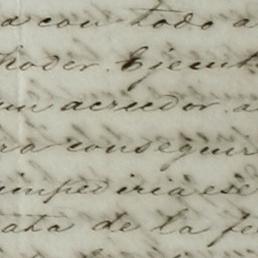 a con todo a
poder. Ejecut
un acreedor a
ra conseguir
impediria ese
ata de la fe